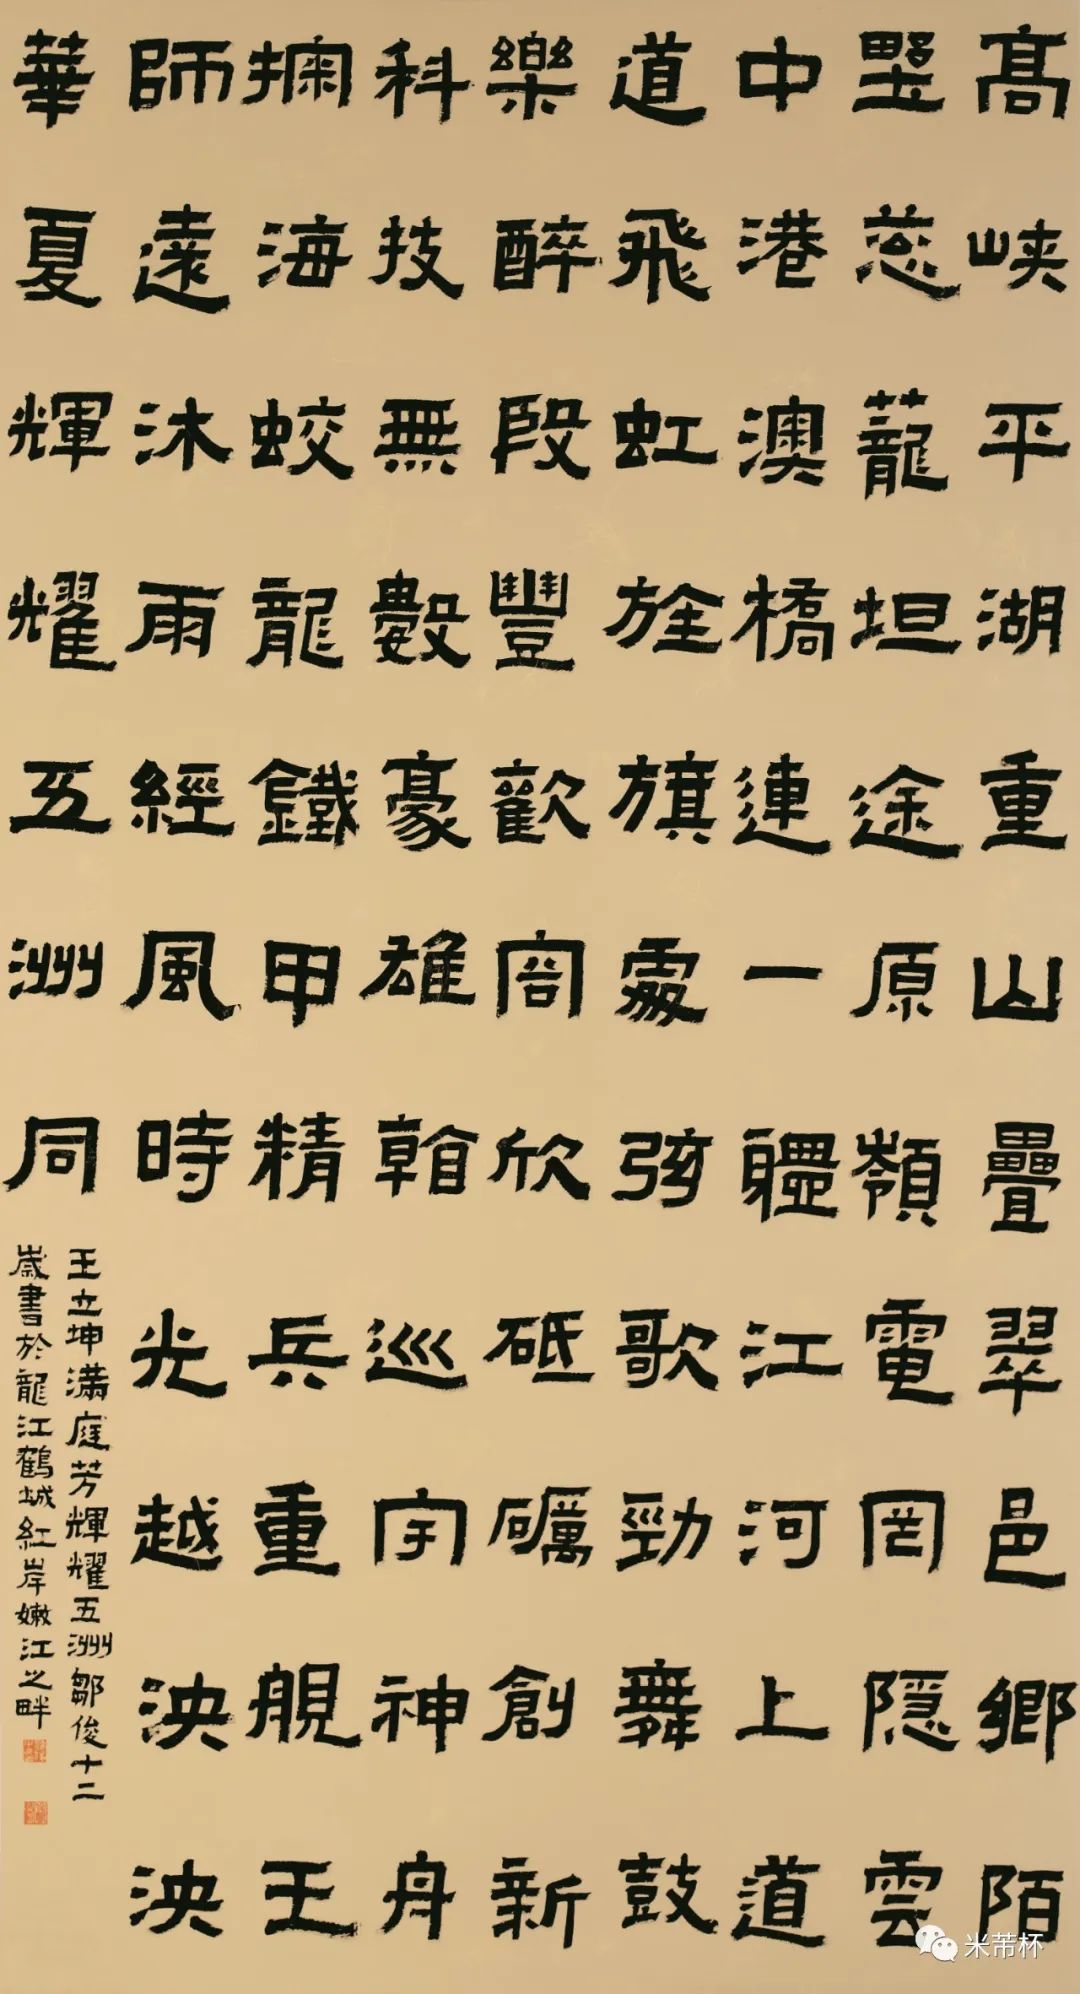 髙峡平湖重山疊翠邑鄉陌
墅葱蘢坦途原嶺電罔隱雲
中港澳橋連一軆江河上道
道飛虹旌旗處弦歌勁舞鼓
樂醉段豐歡容欣砥礪創新
科技無數豪雄翰巡宇神舟
掬海蛟龍鐵甲精兵重舰王
師遠沐雨經風時光越泱泱
華夏輝耀五洲同
王立坤滿庭芳輝耀五洲鄒俊十二
歲書於龍江鶴城紅岸嫩江之畔
米芾杯